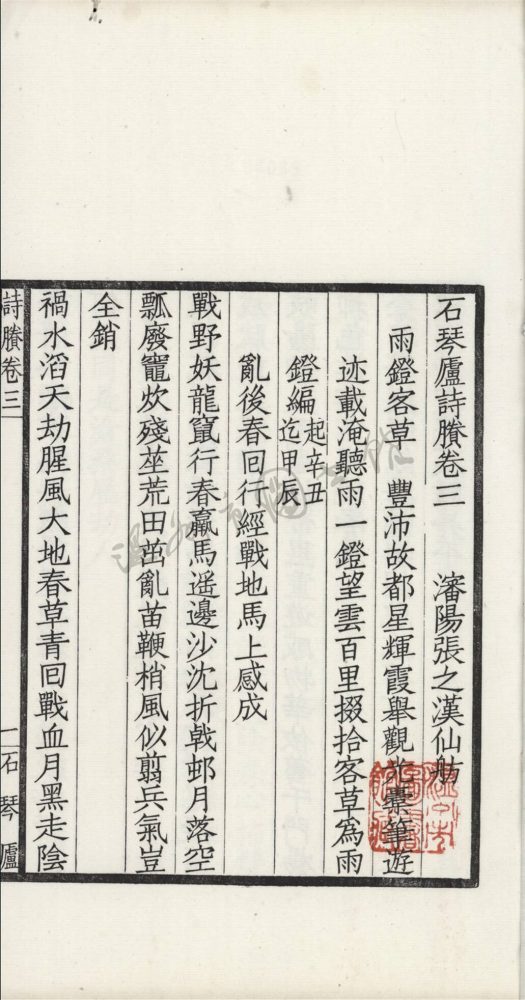 石琴廬詩賸卷三　　瀋陽張之漢仙舫
雨鐙客草　豐沛故都星輝霞舉觀光橐筆遊
迹載淹聽雨一鐙望雲百里掇拾客草爲雨
鐙編起辛丑迄甲辰
亂後春回行經戰地馬上感成
戰野妖龍竄行春羸馬遥邊沙沈折戟邨月落空
瓢廢竈炊殘荎荒田茁亂苗鞭梢風似翦兵氣豈
全銷
禍水滔天劫腥風大地春草青回戰血月黑走陰
詩賸卷三
一
石琴廬